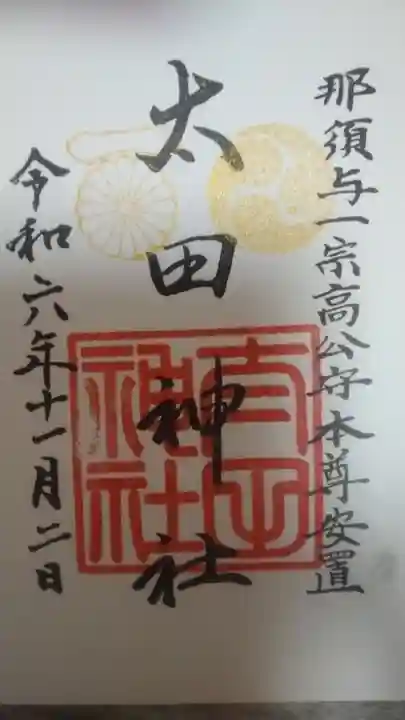 那須与一宗高公守本尊安置
太田神社
令和六年十一月二日